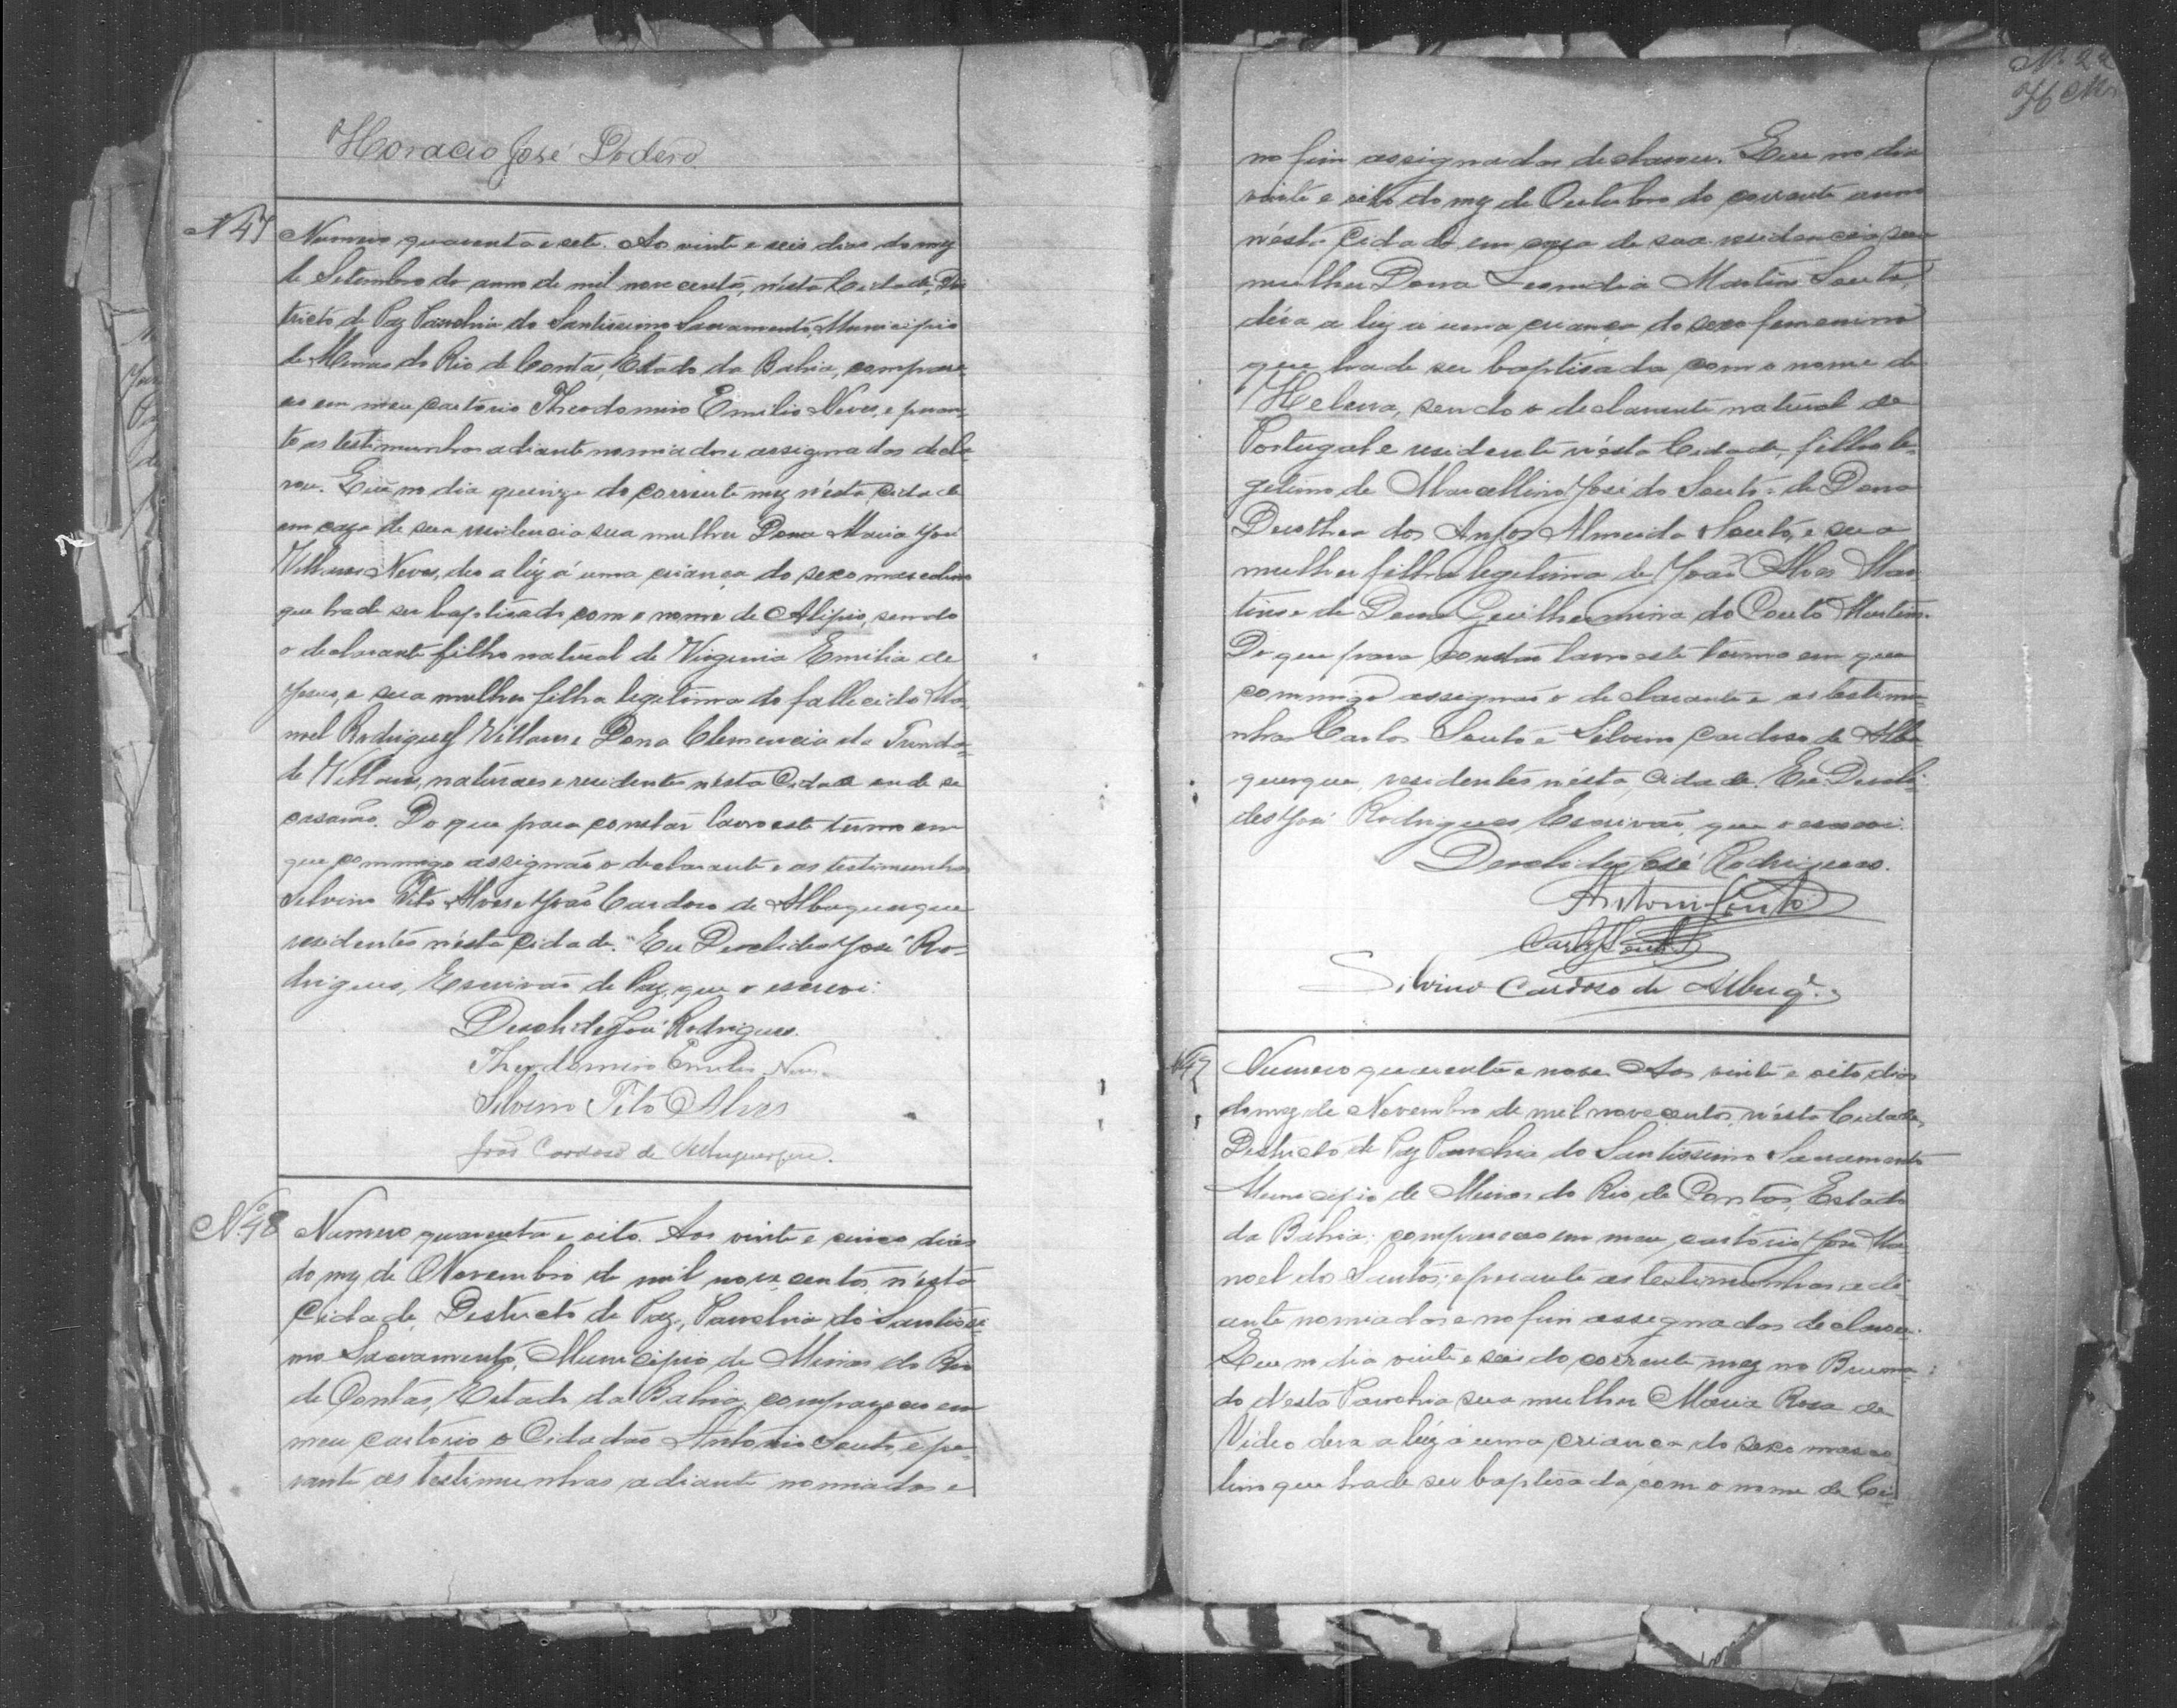 Horacio José Podero
N 47
Numero quarenta e sete. Aos vinte e seis dias do mez
de Setembro do anno de mil nove centos, n'esta Cidade, Dis
tricto de Paz Parochia do Santissimo Sacramento, Municipio
de Minas do Rio de Contas, Estado da Bahia, compare
ceo em meu cartorio Theodomiro Emilio Neves, e peran
te as testimunhas adiante nomiadas e assignados decla
rou. Que no dia quinze do corrente mez n'esta Cidade
em caza de sua residencia sua mulher Dona Maria José
Villares Neves, deo a lúz á uma criança do sexo masculino
que hade ser baptisado com o nome de Alipio, sendo
o declarante filho natural de Virginia Emilia de
Jesus, e sua mulher filha legitima do fallecido Ma
noel Rodrigues Villares e Dona Clemencia da Trinda
de Villares, naturaes e residentes n'esta Cidade onde se
casarão. Do que para constar lavro este termo em
que commigo assignão o declarante e as testimunhas
Silvino Tito Alves e João Cardoso de Albuquerque
residentes n'esta Cidade. Eu Deoclides José Ro-
drigues, Escrivão de Paz, que o escrevi.
Deoclides José Rodrigues.
Theodomiro Emilio Neves
Silvino Tito Alves
João Cardoso de Albuquerque.
Nº 48
Numero quarenta e oito. Aos vinte e cinco dias
do mez de Novembro de mil nove centos, n'esta
Cidade, Destricto de Paz, Parochia do Santissi-
mo Sacramento, Municipio de Minas do Rio
de Contas, Estado da Bahia, compareceo em
meu cartorio o Cidadão Antonio Souto, e pe-
rante as testimunhas adiante nomiadas e
no fim assignadas declarou. Que no dia
vinte e oito do mez de Outubro do corrente anno
n'esta Cidade em casa de sua residencia sua
mulher Dona Leonidia Martins Souto,
déra a lúz á uma criança do sexo femenino
que hade ser baptisada com o nome de
Helena, sendo o declarante natural de
Portugal e residente n'esta Cidade, filho le-
gitimo de Marcellino José do Souto e de Dona
Dorothea dos Anjos Almeida Souto, e sua
mulher filha legitima de João Alves Mar
tins e de Dona Guilhermina do Couto Martins.
Do que para constar lavro este termo em que
commigo assignão o declarante e as testimu-
nhas Carlos Souto e Silvino Cardoso de Albu
querque, residentes n'esta Cidade. Eu Deocli-
des José Rodrigues Escrivão, que o escrevi.
Deoclides José Rodrigues.
Antonio Souto
Carlos Souto
Silvino Cardoso de Albuqe.
Numero quarenta e nove. Aos vinte e oito dias
do mez de Novembro de mil nove centos, n'esta Cidade,
Destricto de Paz Parochia do Santissimo Sacramento
Municipio de Minas do Rio de Contas, Estado
da Bahia; compareceo em meu cartorio José Ma
noel dos Santos; e perante as testimunhas adi
ante nomiadas e no fim assignados declarou.
Que no dia vinte e seis do corrente mez no Bruma
do d'esta Parochia sua mulher Maria Rosa de
déra a lúz a uma criança do sexo mascu
lino que hade ser baptisada com o nome de